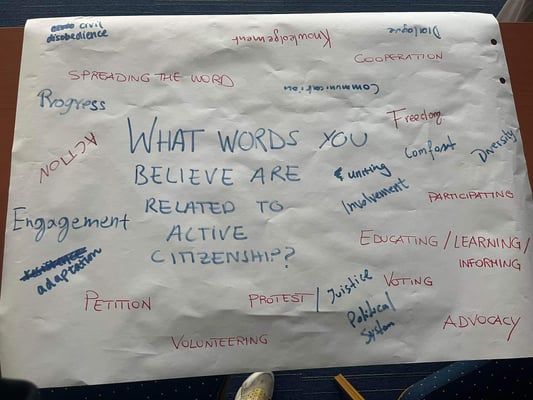 civil
disobedience
Knowledgement
Dialogue
COOPERATION
SPREADING THE WORD
Communication
Progress
Freedom
ACTION
WHAT WORDS YOU
BELIEVE ARE
RELATED TO
ACTIVE
CITIZENSHIP?
& uniting
Comfost
Diversity
Involvement
PARTICIPATING
Engagement
EDUCATING / LEARNING /
INFORMING
adaptation
PETITION
PROTEST / Juistice
VOTING
Political
System
VOLUNTEERING
ADVOCACY